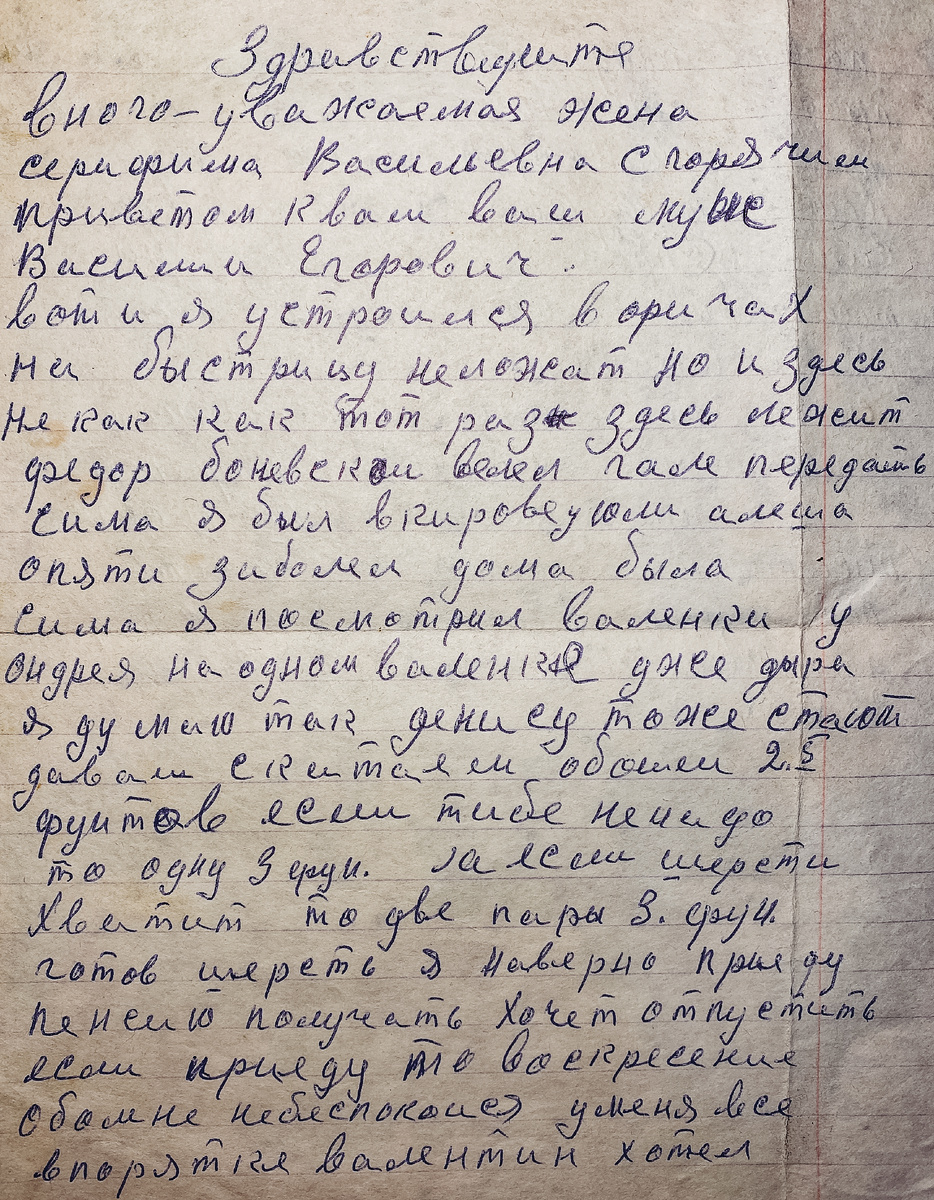 Здравствуите
вного-уважаемая жена
серафима Васильевна с горячим
приветом квам ваш муж
Василии Егорович.
вот и я устроился в оричах
на быстрицу неложат но и здесь
не как как тот раз здесь лежит
федор боневскои велел гале передать
сима я был вкирове у юли алеша
опяти заболел дома была
сима я посмотрил валенки у
ондрея на одном валенке дже дыра
я думаю так денису тоже стают
даваи скатаем обоим 2.5
фунтов если тибе ненадо
то одну 3 фун. а если шерсти
хватит то две пары 3. фун.
готов шерсть я наверно прииду
пенсию получать хочет отпустить
если прииду то воскресение
обомне небеспокоися уменя все
впорятке валентин хотел